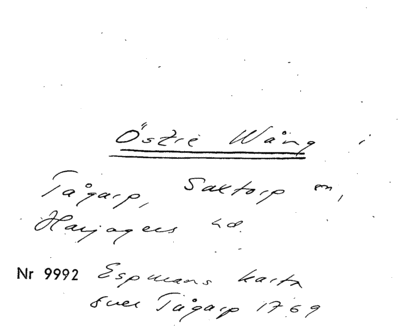 Östre Wång i
Tågarp, Saxtorp sn,
Harjagers hd.
Nr 9992 Espmans karta
över Tågarp 1769